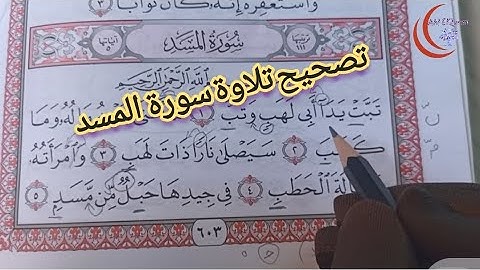 وَاسْتَغْفِرْهُ إِنَّهُ كَانَ تَوَّابًا ٣
سُورَةُ المَسَدِ
تصحيح تلاوة سورة المسد
الرَّحْمَنِ الرَّحِيمِ
تَبَّتْ يَدَا أَبِي لَهَبٍ وَتَبَّ ١ مَالُهُ وَمَا
كَسَبَ ٢ سَيَصْلَى نَارًا ذَاتَ لَهَبٍ ٣ وَامْرَأَتُهُ
الْحَطَبِ ٤ فِي جِيدِهَا حَبْلٌ مِّن مَّسَدٍ ٥
٦٠٣